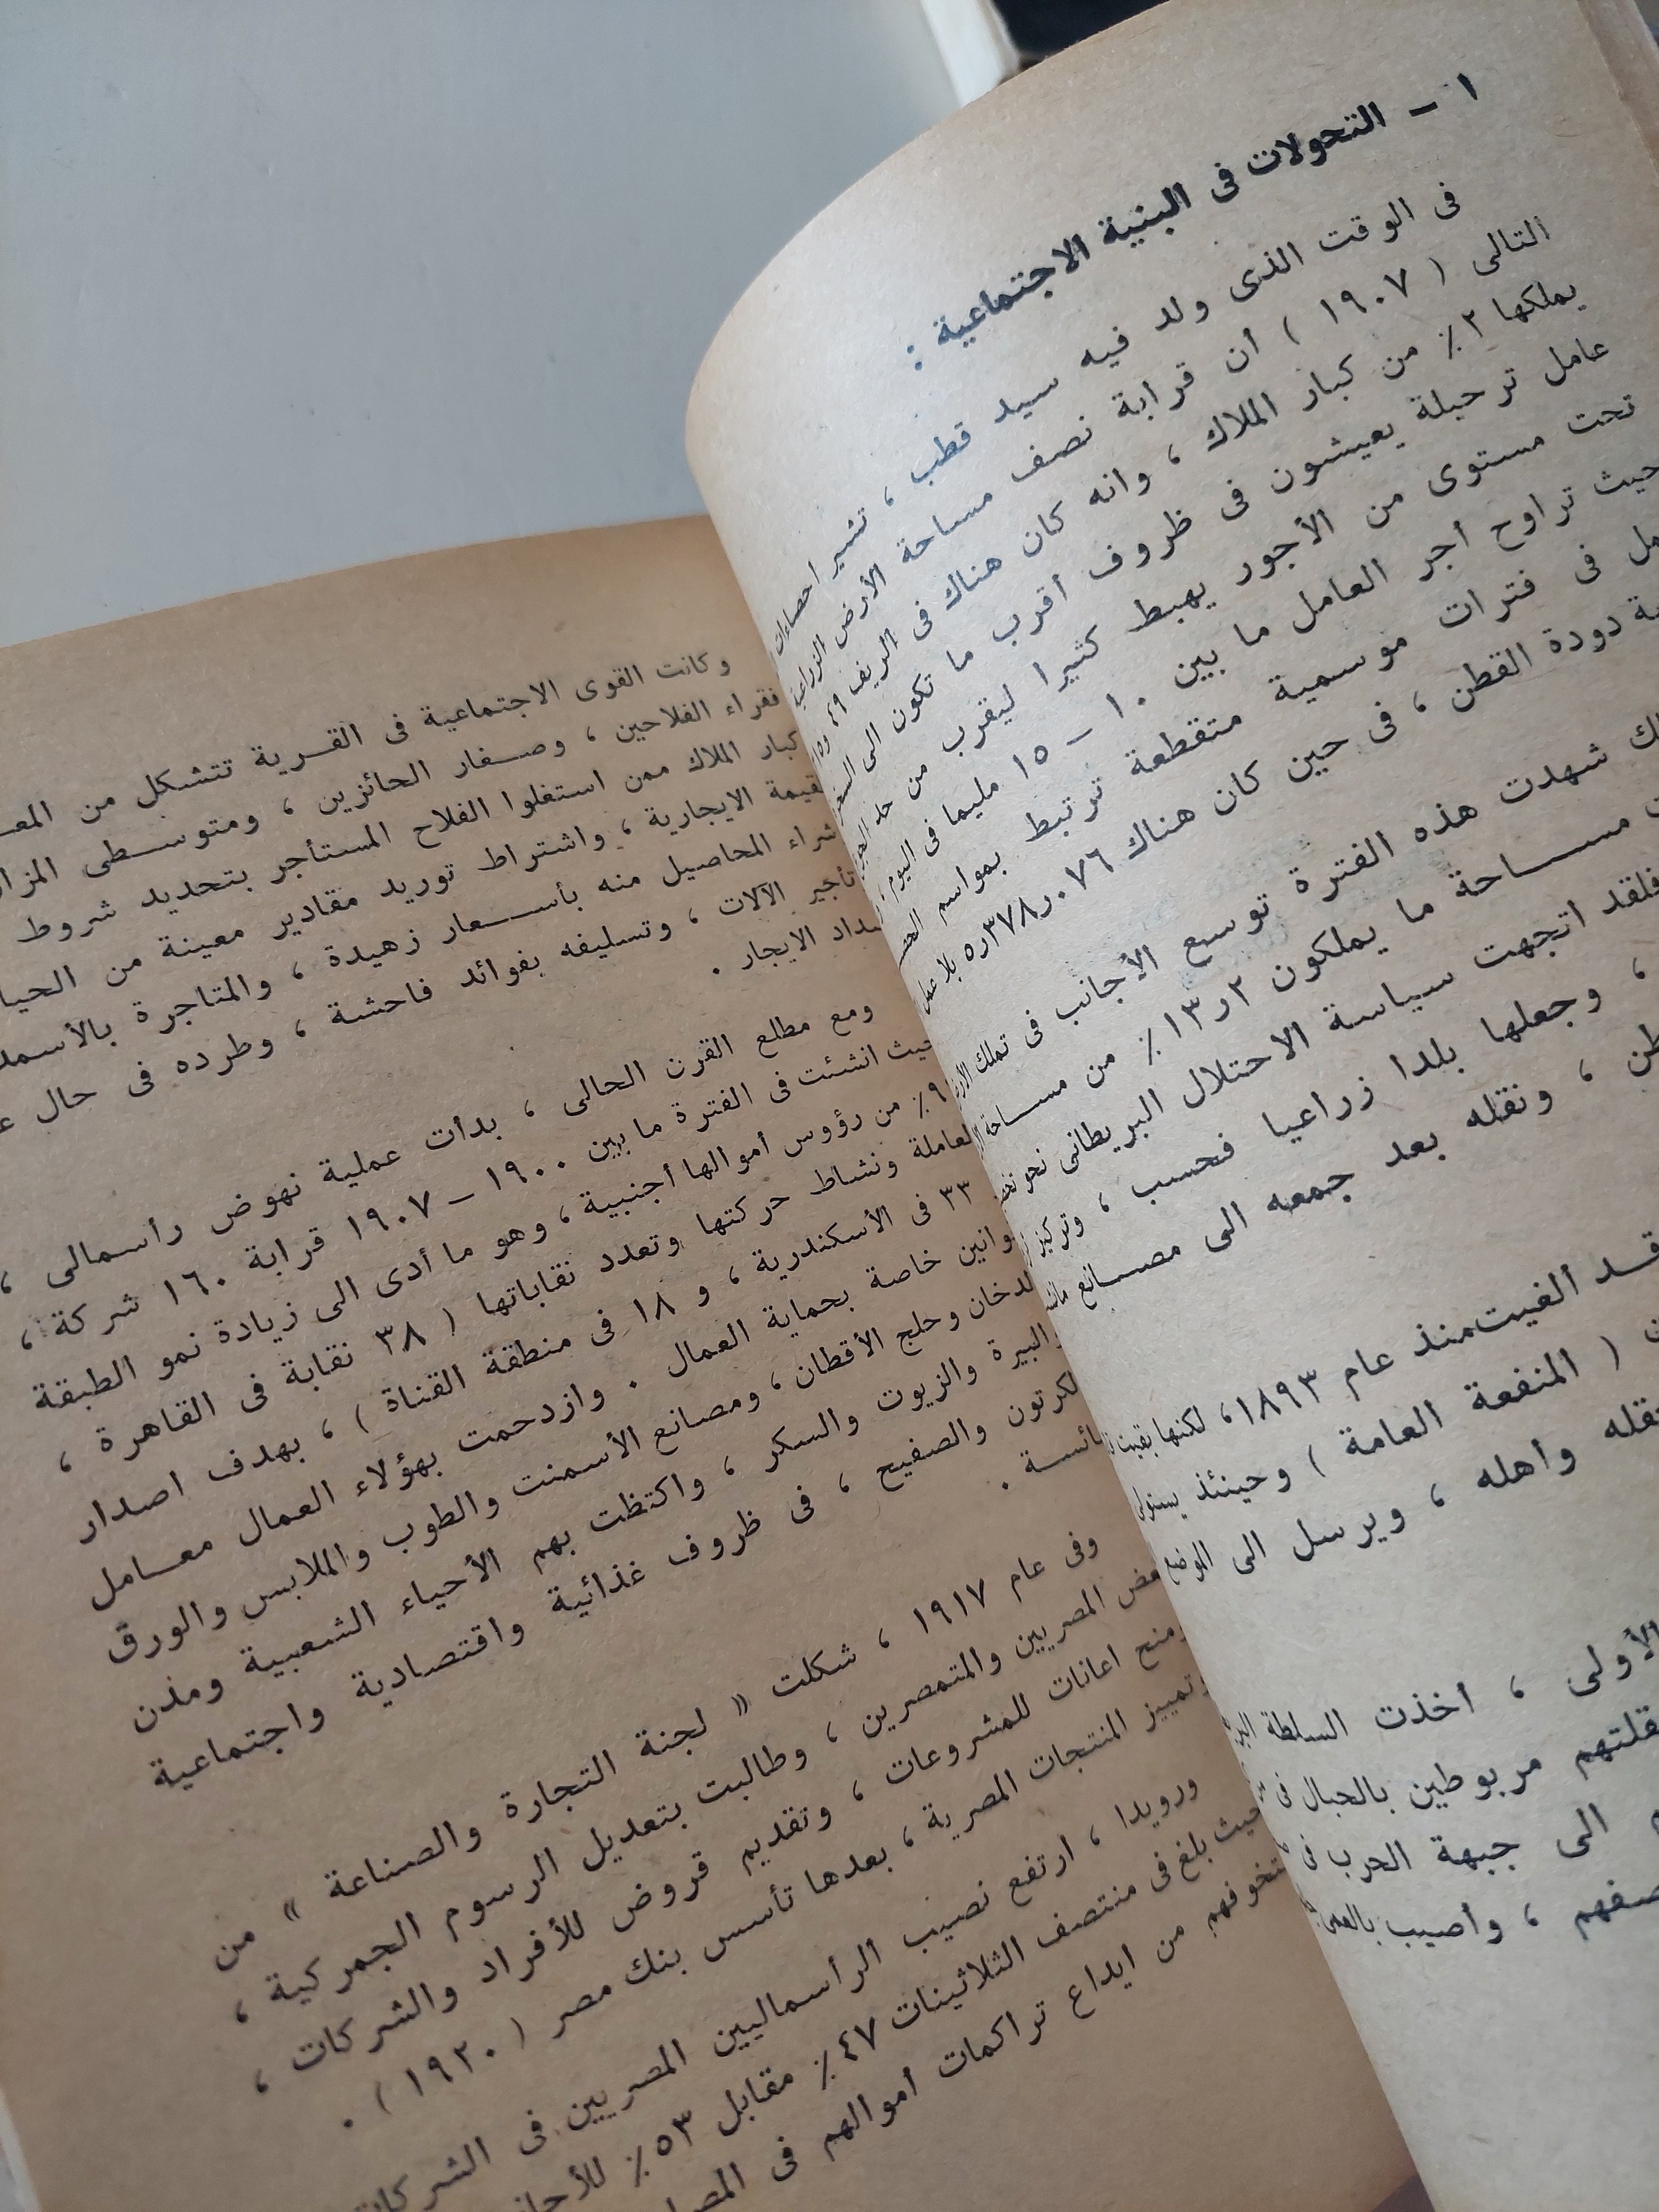 ١ - التحولات فى البنية الاجتماعية :
فى الوقت الذى ولد فيه سيد قطب ، تشير احصاءات
التالى ( ١٩٠٧ ) أن قرابة نصف مساحة الأرض الزراعية
يملكها ٢٪ من كبار الملاك ، وانه كان هناك فى الريف
عامل ترحيلة يعيشون فى ظروف أقرب ما تكون الى
تحت مستوى من الأجور يهبط كثيرا ليقرب من حد
حيث تراوح أجر العامل ما بين ١٠ - ١٥ مليما فى اليوم
فى فترات موسمية متقطعة ترتبط بمواسم
دودة القطن ، فى حين كان هناك ٠٧٦ر٣٧٨ر٥ بلا عمل
شهدت هذه الفترة توسع الأجانب فى تملك
مساحة ما يملكون ٢ر١٣٪ من مساحة
فلقد اتجهت سياسة الاحتلال البريطانى نحو
، وجعلها بلدا زراعيا فحسب ، وتركيز
، ونقله بعد جمعه الى مصانع
الغيت منذ عام ١٨٩٣ ، لكنها بقيت
( المنفعة العامة ) وحينئذ يستولى
واهله ، ويرسل الى الموضع
الأولى ، أخذت السلطة
مربوطين بالحبال فى
الى جبهة الحرب فى
، وأصيب
وكانت القوى الاجتماعية فى القرية تتشكل من
فقراء الفلاحين ، وصغار الحائزين ، ومتوسطى
كبار الملاك ممن استغلوا الفلاح المستأجر بتحديد شروط
القيمة الايجارية ، واشتراط توريد مقادير معينة من
شراء المحاصيل منه بأسعار زهيدة ، والمتاجرة
تأجير الآلات ، وتسليفه بفوائد فاحشة ، وطرده فى حال
سداد الايجار .
ومع مطلع القرن الحالى ، بدأت عملية نهوض رأسمالى ،
حيث انشئت فى الفترة ما بين ١٩٠٠ - ١٩٠٧ قرابة ١٦٠ شركة ،
من رؤوس أموالها أجنبية ، وهو ما أدى الى زيادة نمو الطبقة
العاملة ونشاط حركتها وتعدد نقاباتها ( ٣٨ نقابة فى القاهرة ،
٣٣ فى الأسكندرية ، و ١٨ فى منطقة القناة ) ، بهدف اصدار
خاصة بحماية العمال . وازدحمت بهؤلاء العمال معامل
الدخان وحلج الأقطان ، ومصانع الأسمنت والطوب والملابس والورق
والبيرة والزيوت والسكر ، واكتظت بهم الأحياء الشعبية ومدن
الكرتون والصفيح ، فى ظروف غذائية واقتصادية واجتماعية
بائسة .
وفى عام ١٩١٧ ، شكلت « لجنة التجارة والصناعة » من
بعض المصريين والمتمصرين ، وطالبت بتعديل الرسوم الجمركية ،
ومنح اعانات للمشروعات ، وتقديم قروض للأفراد والشركات ،
وتمييز المنتجات المصرية ، بعدها تأسس بنك مصر ( ١٩٢٠ ) .
ورويدا ، ارتفع نصيب الرأسماليين المصريين فى
حيث بلغ فى منتصف الثلاثينات ٤٧٪ مقابل ٥٣٪
من ايداع تراكمات أموالهم فى